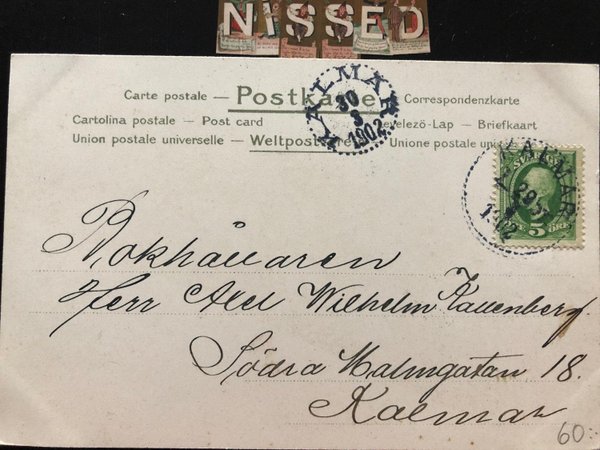 NISSED
Carte postale — Postkarte — Correspondenzkarte
Cartolina postale — Post card — Levelező-Lap — Briefkaart
Union postale universelle — Weltpostverein — Unione postale
KALMAR
30
3
1902
KALMAR
1902
5 ÖRE
Bokhållaren
Herr Axel Wilhelm Kallenberg.
Södra Malmgatan 18.
Kalmar
60:-